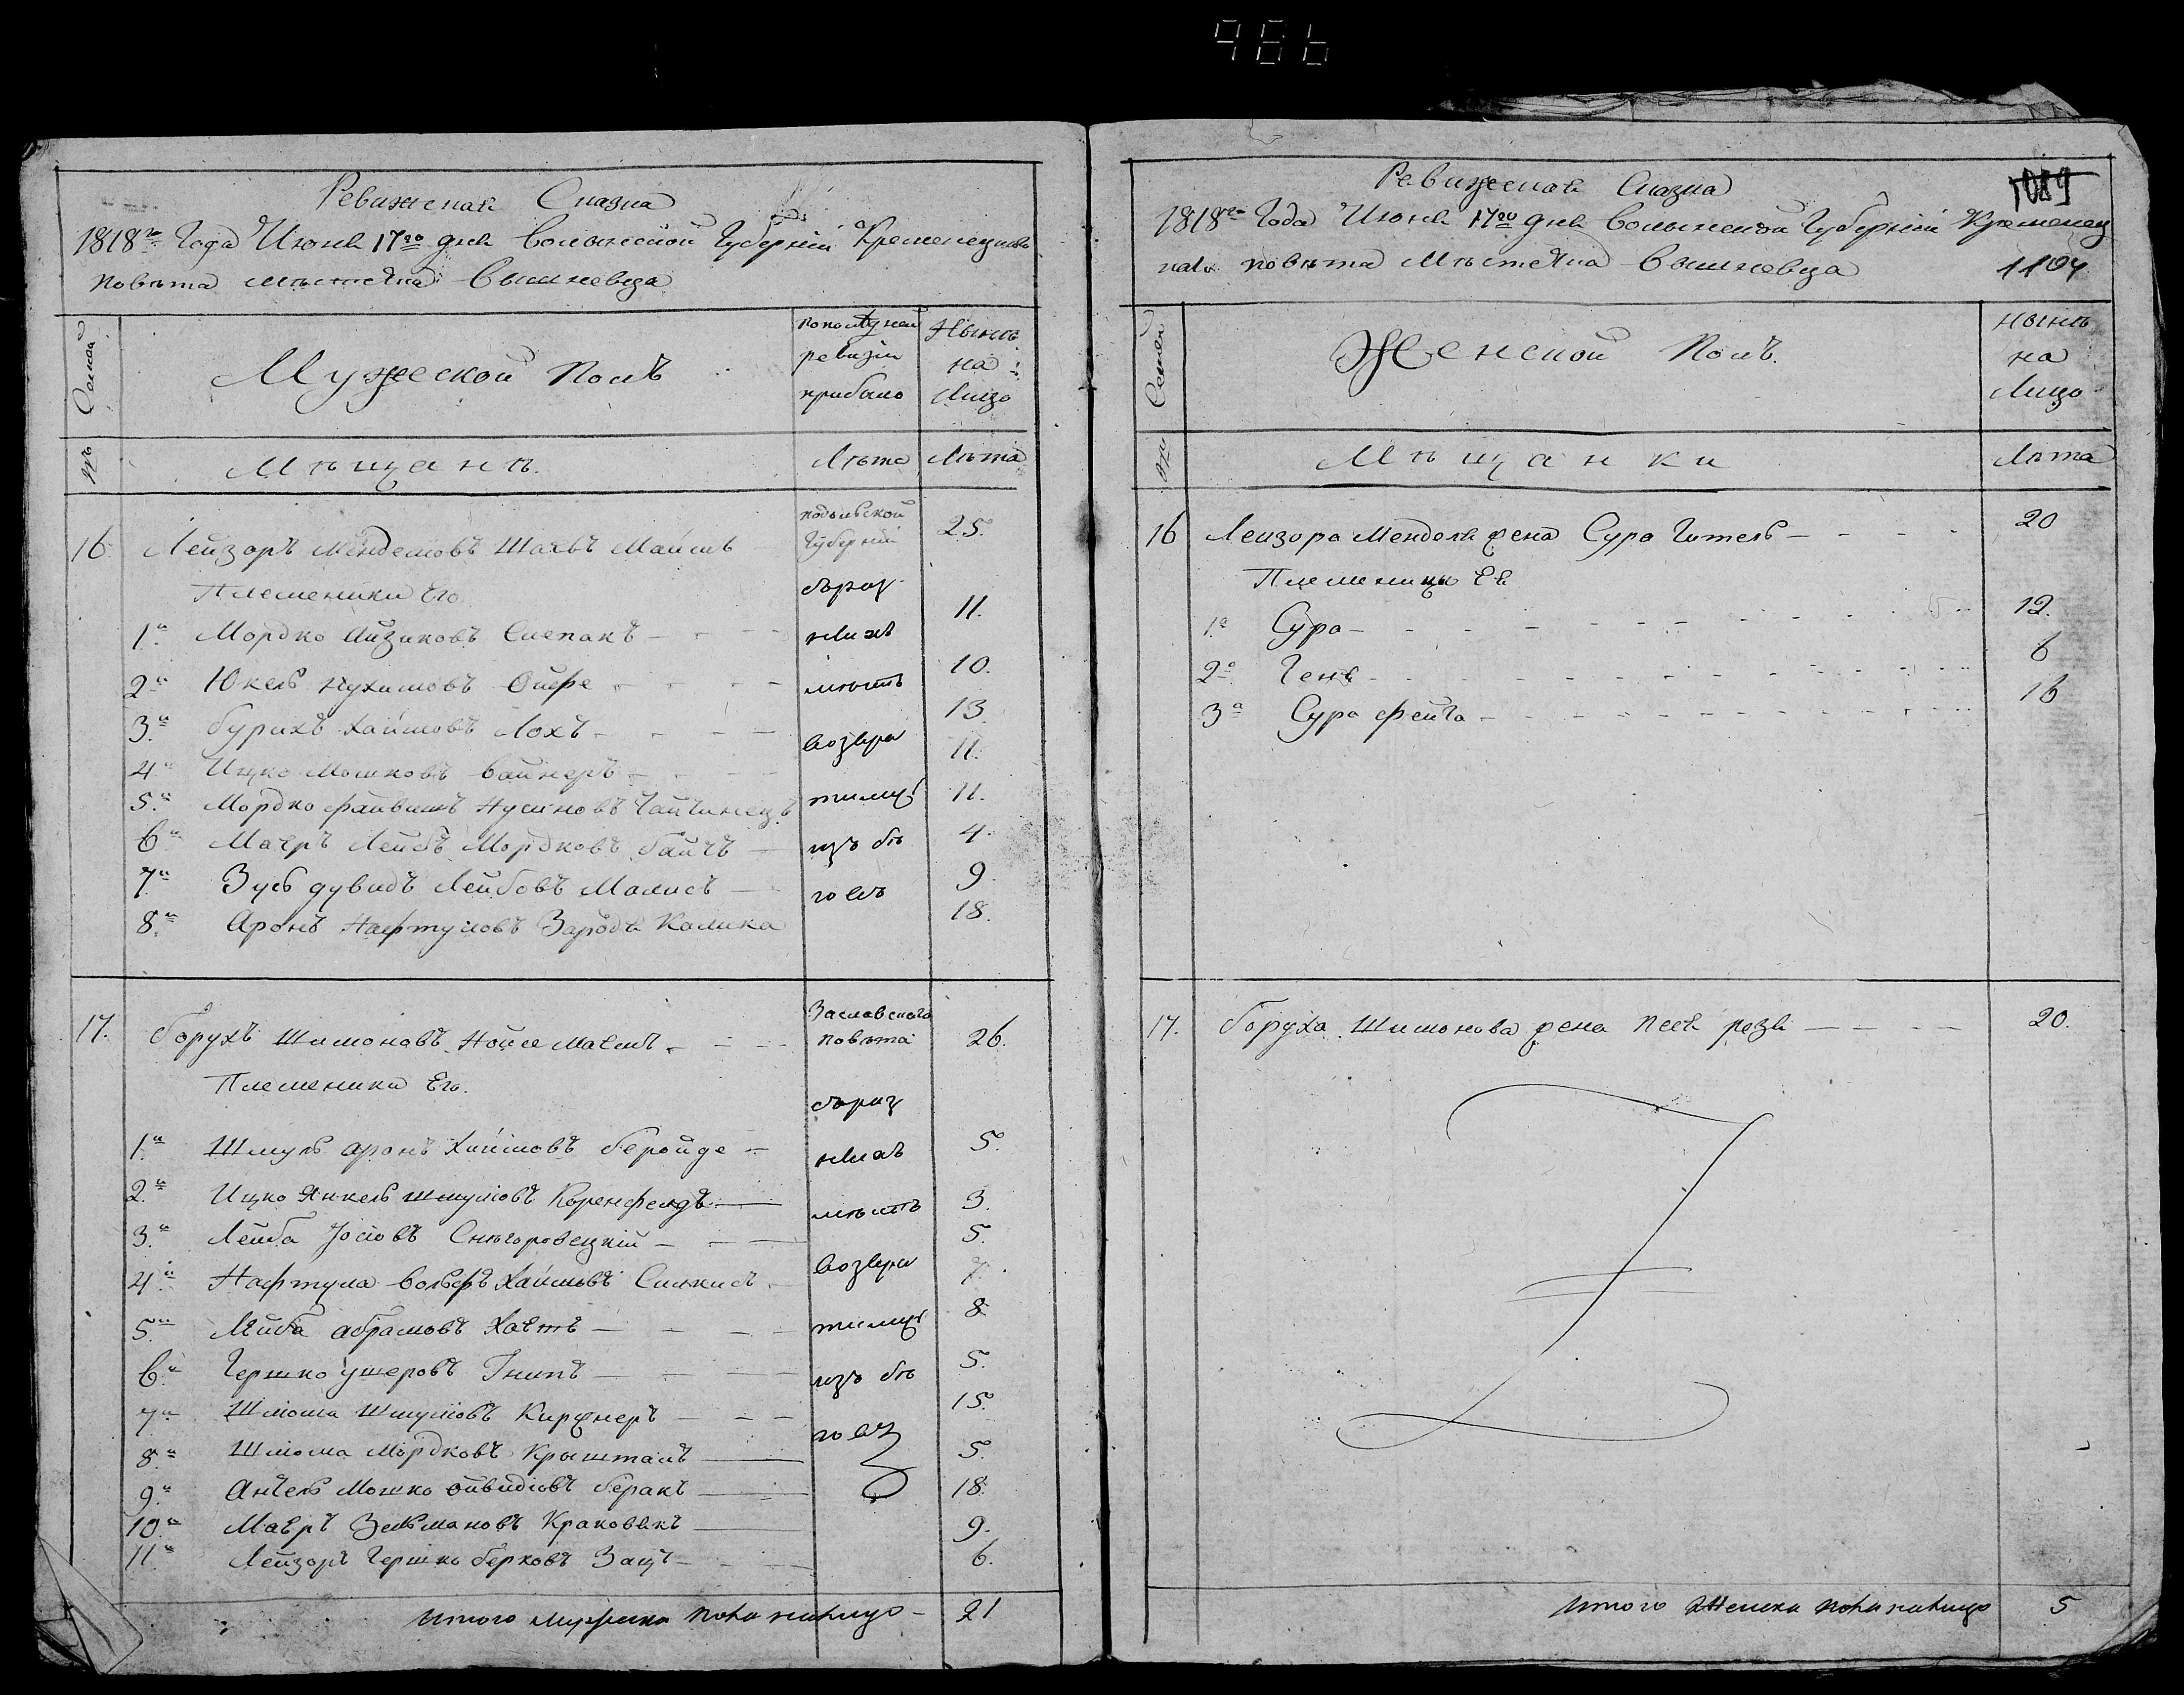 986
Ревижская Сказка
1818го Года Июня 17го дня Волынской Губернiи Кременецкаго
повѣта мѣстечка Вышневца
Семей
Мужеской полъ
по послѣдней ревизiи прибыло
Нынѣ на Лицо
Мѣщанѣ
Лѣта
Лѣта
16. Лейзоръ Менделювъ Шаявъ Майшъ
подольской Губернiи
25.
Племеники Его
1й Мордко Айзиковъ Слепакъ
11.
2й Юкель Нухимовъ
10.
3й Бурихъ Хаимовъ Лохъ
13
4й Ицко Мошковъ Вайнеръ
11.
5й Мордко Файвишъ Нусиновъ Чайчинецъ
11.
6й Маеръ Лейбъ Мордковъ
4.
7й Зусь Дувидъ Лейбовъ Малисъ
9.
8й Аронъ Нафтуловъ Калика
18.
17. Борухъ Шимоновъ
Заславского повѣта
26.
Племеники Его.
1й Шмуль Аронъ Хаимовъ Беройде
5.
2й Ицко Янкель Шмулювъ Коренфелдъ
3.
3й Лейба Iосiовъ Снѣгоровецкiй
5.
4й Нафтула Вольфъ Хаимовъ
7.
5й Лейба Абрамовъ
8.
6й Гершко Ушеровъ Гнипъ
5.
7й Шлома Шмулювъ Киржнеръ
15.
8й Шлома Мордковъ Крышталъ
5.
9й Анчель Мошко Беракъ
18.
10й Маеръ Зельмановъ Краковякъ
9.
11й Лейзоръ Гершко Берковъ Зацъ
6.
возвратились изъ бѣговъ
Итого мужеска пола налицо 21
Ревижская Сказка
1089
1818го Года Июня 17го дня Волынской Губернiи Кременец
каго повѣта Мѣстечка Вышневца
1104
Семей
Женской полъ.
Нынѣ на Лицо
Мѣщанки
Лѣта
16 Лейзора Менделя жена Сура Гитель
20
Племеницы Ея
1я Сура
12.
2я Геня
6
3я Сура Фейга
16
17. Боруха Шимонова жена Песя
20.
Итого Женска пола налицо 5